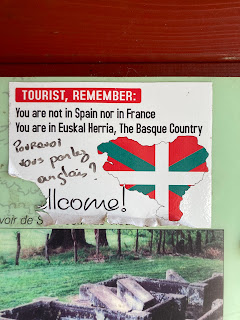 TOURIST, REMEMBER:
You are not in Spain nor in France
You are in Euskal Herria, The Basque Country
Pourquoi
vous parlez
anglais?
llcome!
voir de S